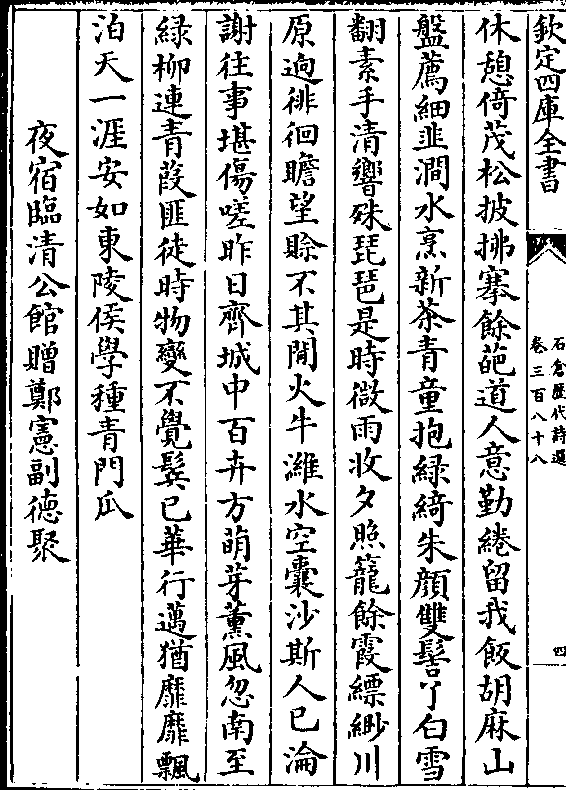 欽定四庫全書
石倉歴代詩選
卷三百八十八
四
休憩倚茂松披拂搴餘葩道人意勤綣留我飯胡麻山
盤薦細韭澗水烹新茶青童抱緑綺朱顔雙髻丫白雪
翻素手清響殊琵琶是時微雨收夕照籠餘霞縹緲川
原逈徘徊瞻望賖不其開火牛濰水空囊沙斯人已淪
謝往事堪傷嗟昨日齊城中百卉方萌芽薫風忽南至
緑柳連青葭匪徒時物變不覺鬂已華行邁猶靡靡飄
泊天一涯安如東陵侯學種青門瓜
夜宿臨清公館贈鄭憲副德聚